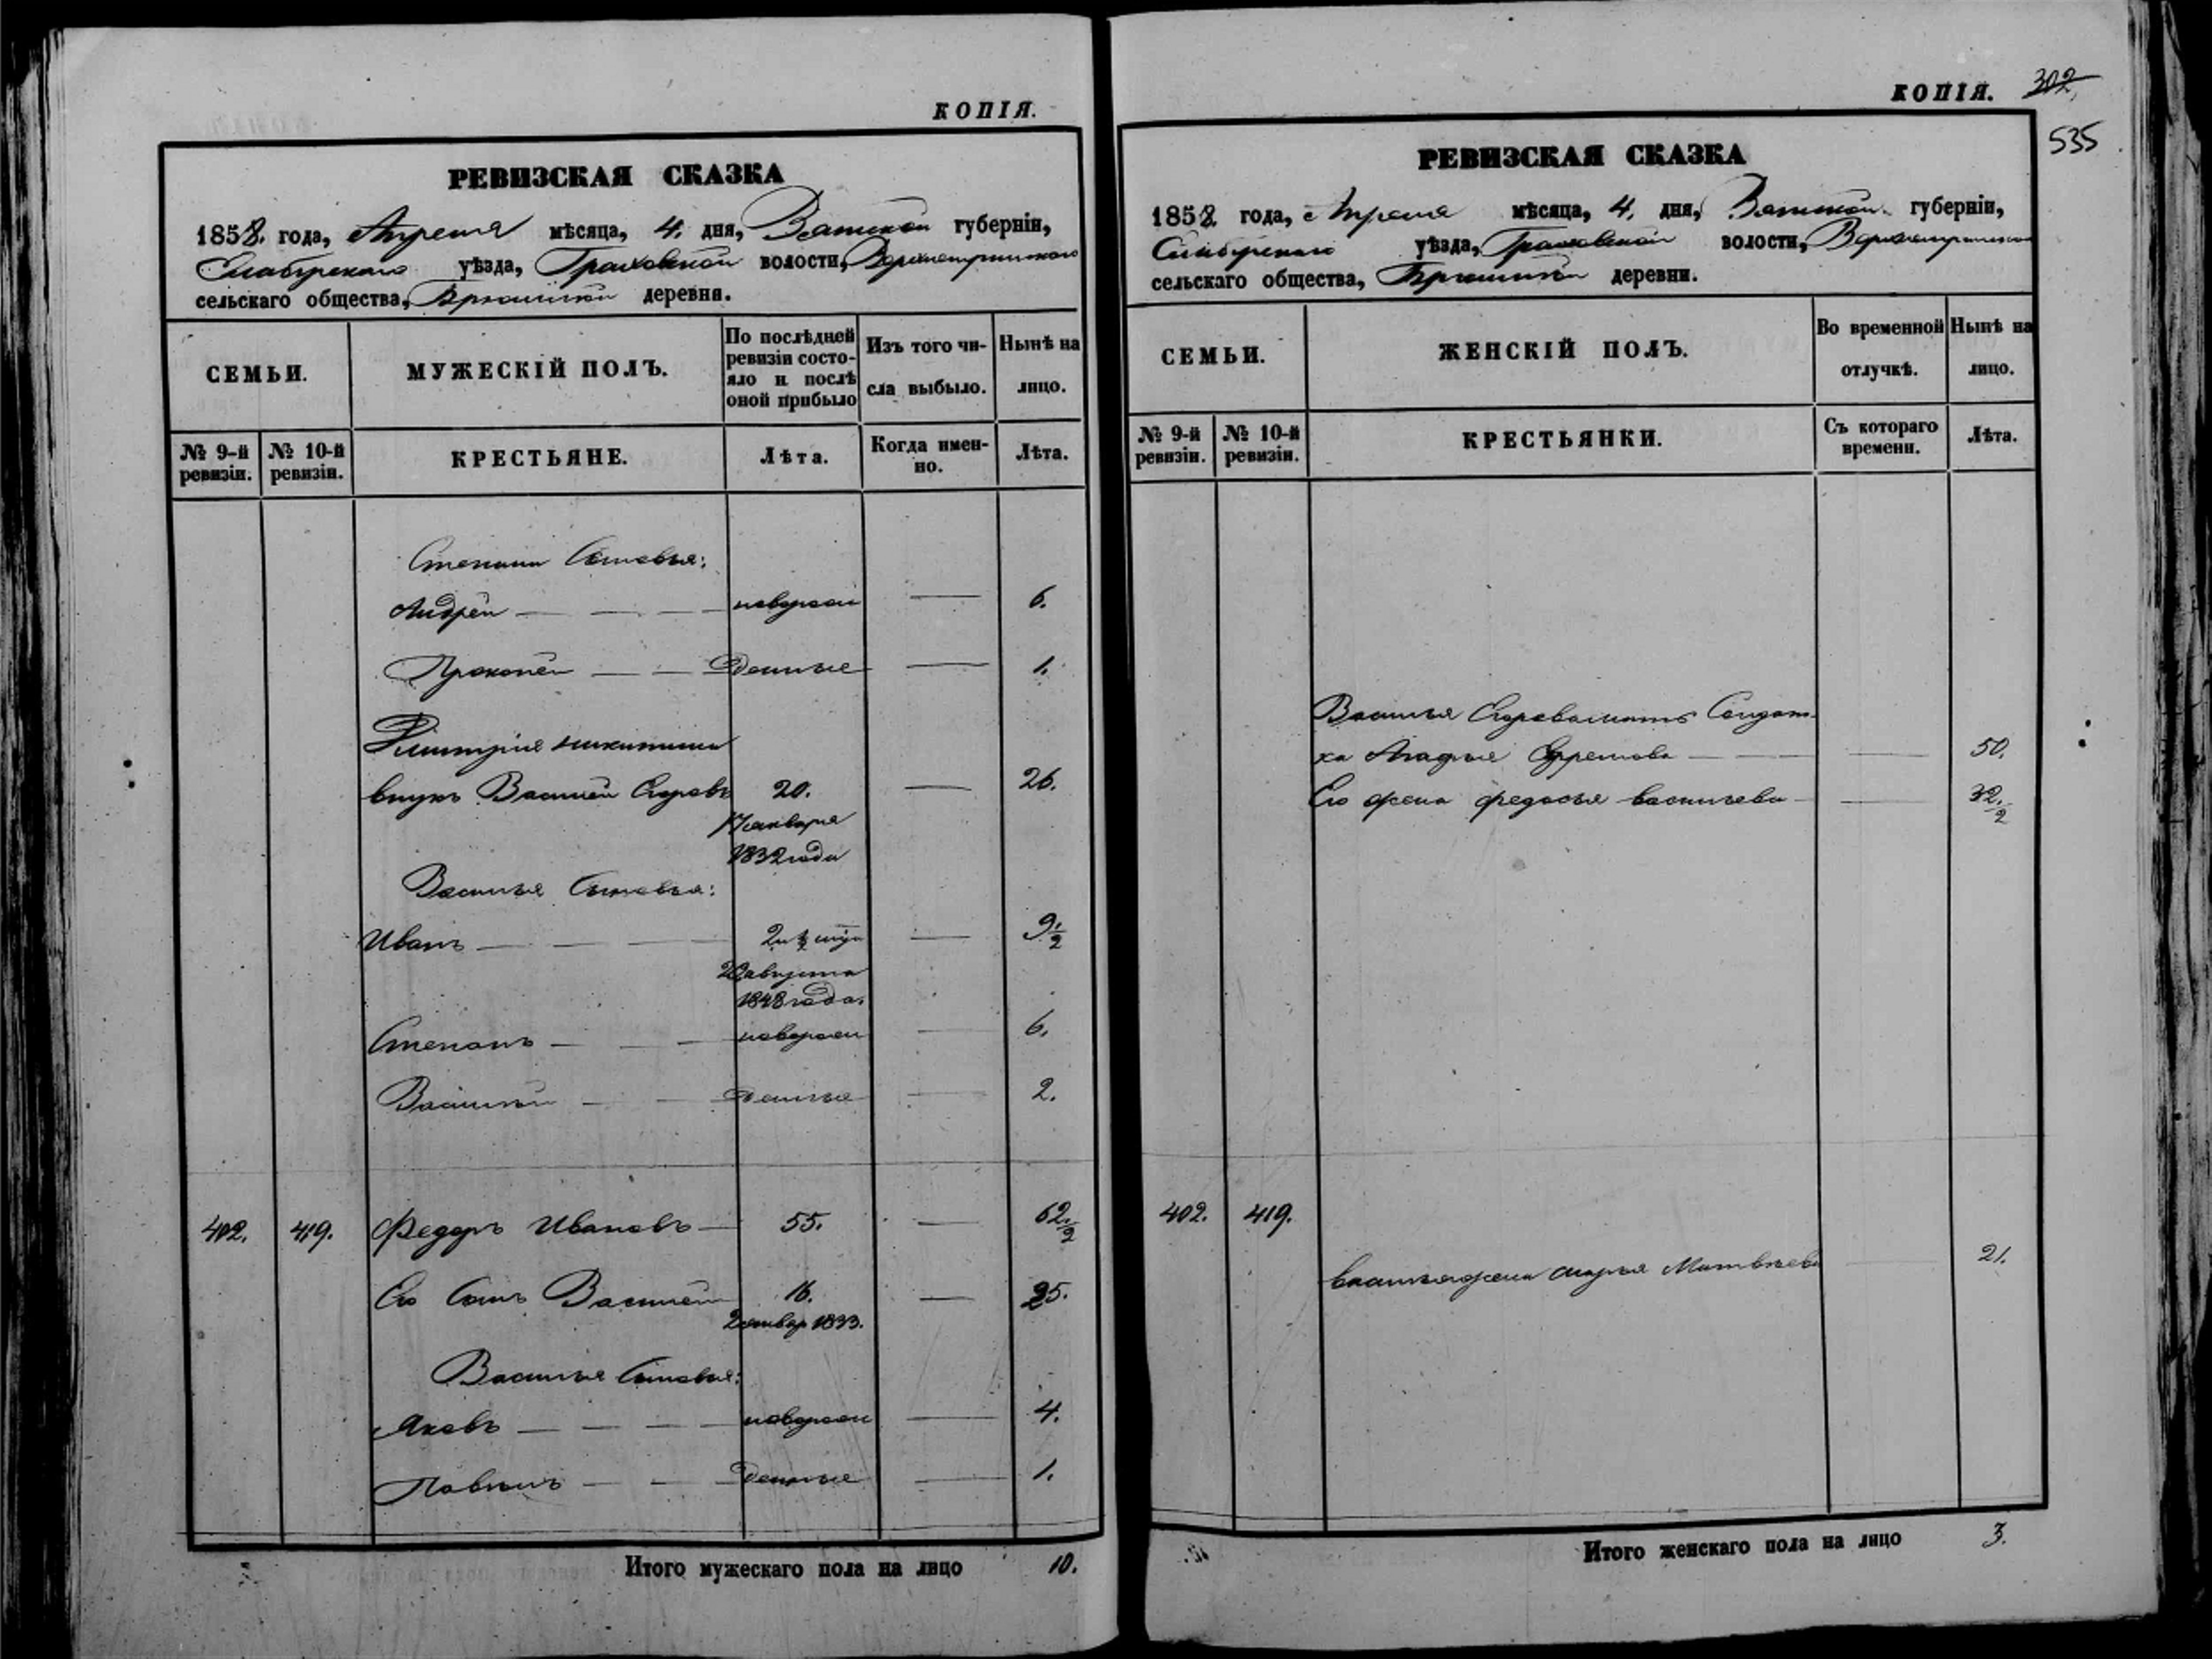 КОПІЯ.
РЕВИЗСКАЯ СКАЗКА
1858. года, Апреля мѣсяца, 4. дня, Вятской губерніи,
Елабужскаго уѣзда, Граховской волости,
сельскаго общества, деревня.
СЕМЬИ.
МУЖЕСКІЙ ПОЛЪ.
По послѣдней ревизіи состояло и послѣ оной прибыло
Изъ того числа выбыло.
Нынѣ на лицо.
№ 9-й ревизіи.
№ 10-й ревизіи.
КРЕСТЬЯНЕ.
Лѣта.
Когда именно.
Лѣта.
Степана Сыновья:
Андрей — — — новорож — 6.
Прокопей — — денные — 1.
Дмитрія Никитина
внукъ Василей Егоровъ 20. — 26.
17 января
1832 года
Василья Сыновья:
Иванъ — — — — 9 1/2
августа
1848 года.
Степанъ — — новорож — 6.
Василей — — денные — 2.
402. 419. Федоръ Ивановъ — 55. — 62 1/2
Его Сынъ Василей 16. — 25.
1833.
Василья Сыновья:
Яковъ — — — новорож — 4.
Павелъ — — денные — 1.
Итого мужескаго пола на лицо 10.
КОПІЯ. 302
535
РЕВИЗСКАЯ СКАЗКА
1858. года, Апреля мѣсяца, 4. дня, Вятской губерніи,
Елабужскаго уѣзда, Граховской волости,
сельскаго общества, деревни.
СЕМЬИ.
ЖЕНСКІЙ ПОЛЪ.
Во временной отлучкѣ.
Нынѣ на лицо.
№ 9-й ревизіи.
№ 10-й ревизіи.
КРЕСТЬЯНКИ.
Съ котораго времени.
Лѣта.
Василья Егорова мать Солдат-
ка Агафья Ефремова — — 50.
Его жена Федосья Васильева — — 32 1/2
402. 419.
Василья жена Марья Матвѣева — 21.
Итого женскаго пола на лицо 3.